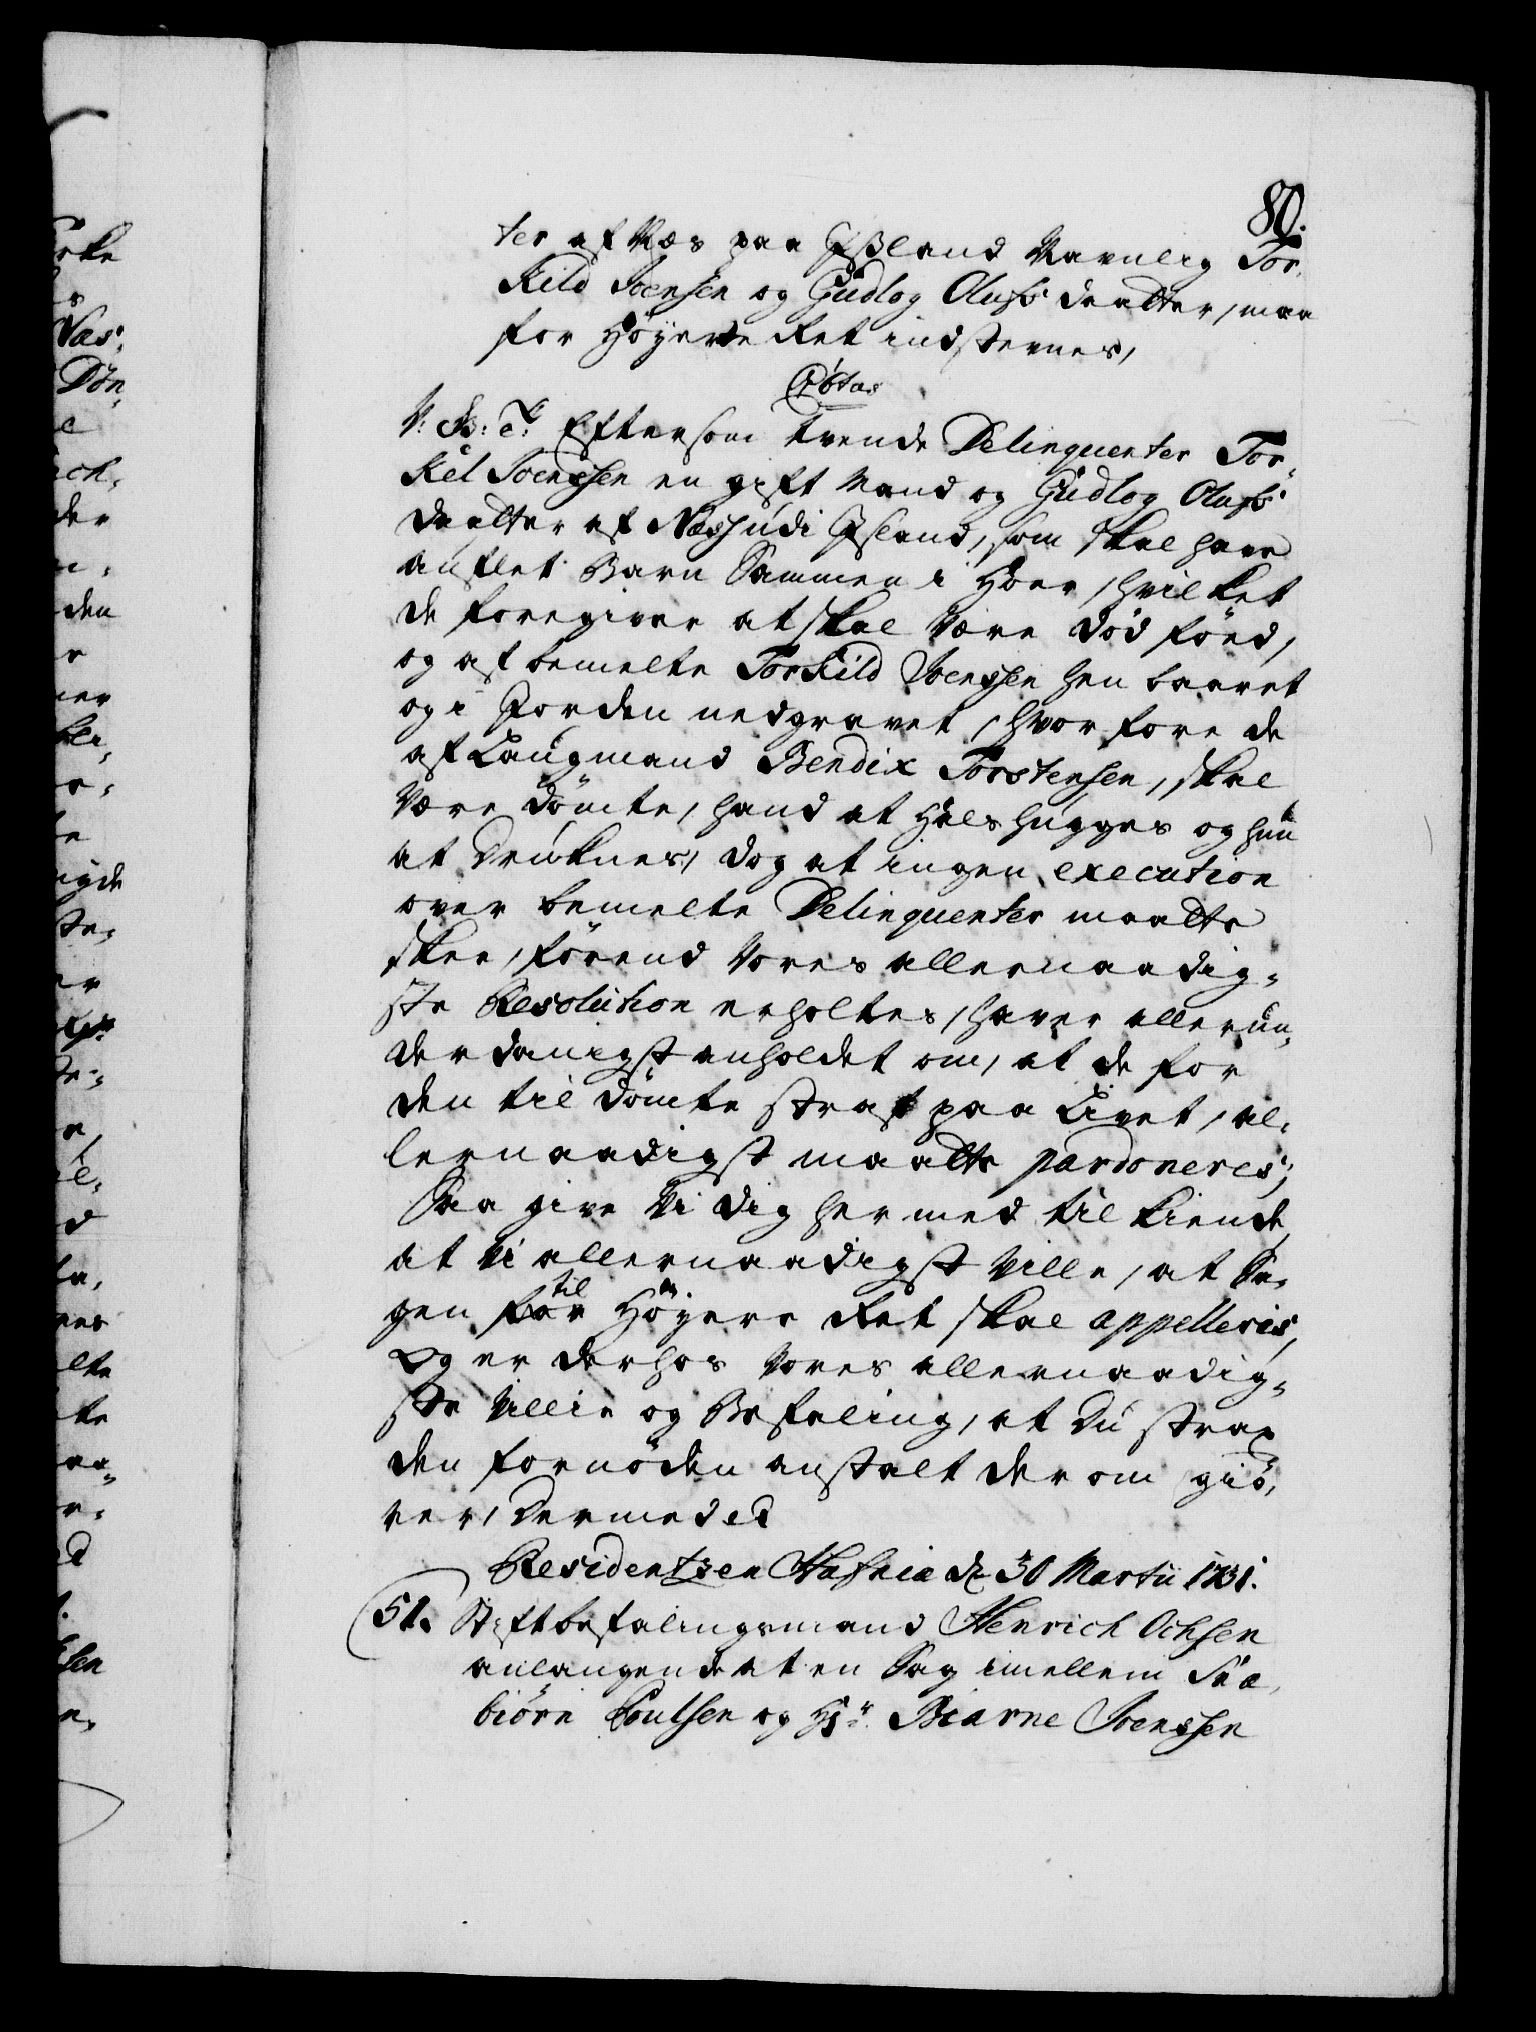 80.
ter af Næs paa Ißland Navnlig Tor-
kild Joensen og Gudlog Olufs daatter, maa
for Høyeste Ret indstevnes,
V: S: C: Eftersom tvende Delinquenter Tor-
kel Joenssen en gift Mand og Gudlog Olufs
daatter af Næssudi Island, som skal have
auflet Barn Sammen i Hoer, hvilket
de foregiver at skal være død fød,
og af bemelte Torkild Joenssen hen baaret
og i Jorden nedgravet, hvor fore de
af Laugmand Bendix Torstensen, skal
være dømte, hand at Halshugges og hun
at Druknes, dog at ingen execution
over bemelte Delinquenter maatte
skee, førend Vores allernaadig-
ste Resolution erholtes, haver allerun-
derdanigst anholdet om, at de for
den til dømte straf paa Livet, al-
lernaadigst maatte pardoneres;
Saa give Vi dig hermed til kiende,
at Vi allernaadigst ville, at Sa-
gen til Høyere Ret skal appelleris,
Og er derhos Vores allernaadig-
ste Villie og Befaling, at Du strax
den fornøden anstalt derom giø-
rer, Dermed et
Residentzen Hafnia d. 30 Martii 1731.
51. Stiftbefalingsmand Henrich Ochsen
anlangende at en Sag imellem Sæ-
biørn Poulsen og Hr. Biarne Joenssen